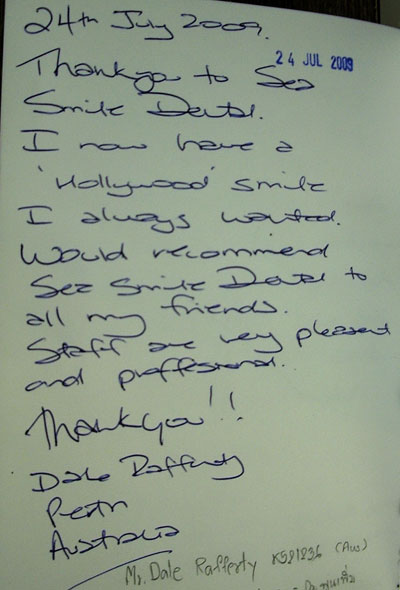 24th July 2009.
24 JUL 2009
Thankyou to Sea
Smile Dental.
I now have a
'Hollywood' smile
I always wanted.
Would recommend
Sea Smile Dental to
all my friends.
Staff are very pleasant
and proffessional.
Thankyou!!
Dale Rafferty
Perth
Australia
Mr. Dale Rafferty K521236 (Aus)